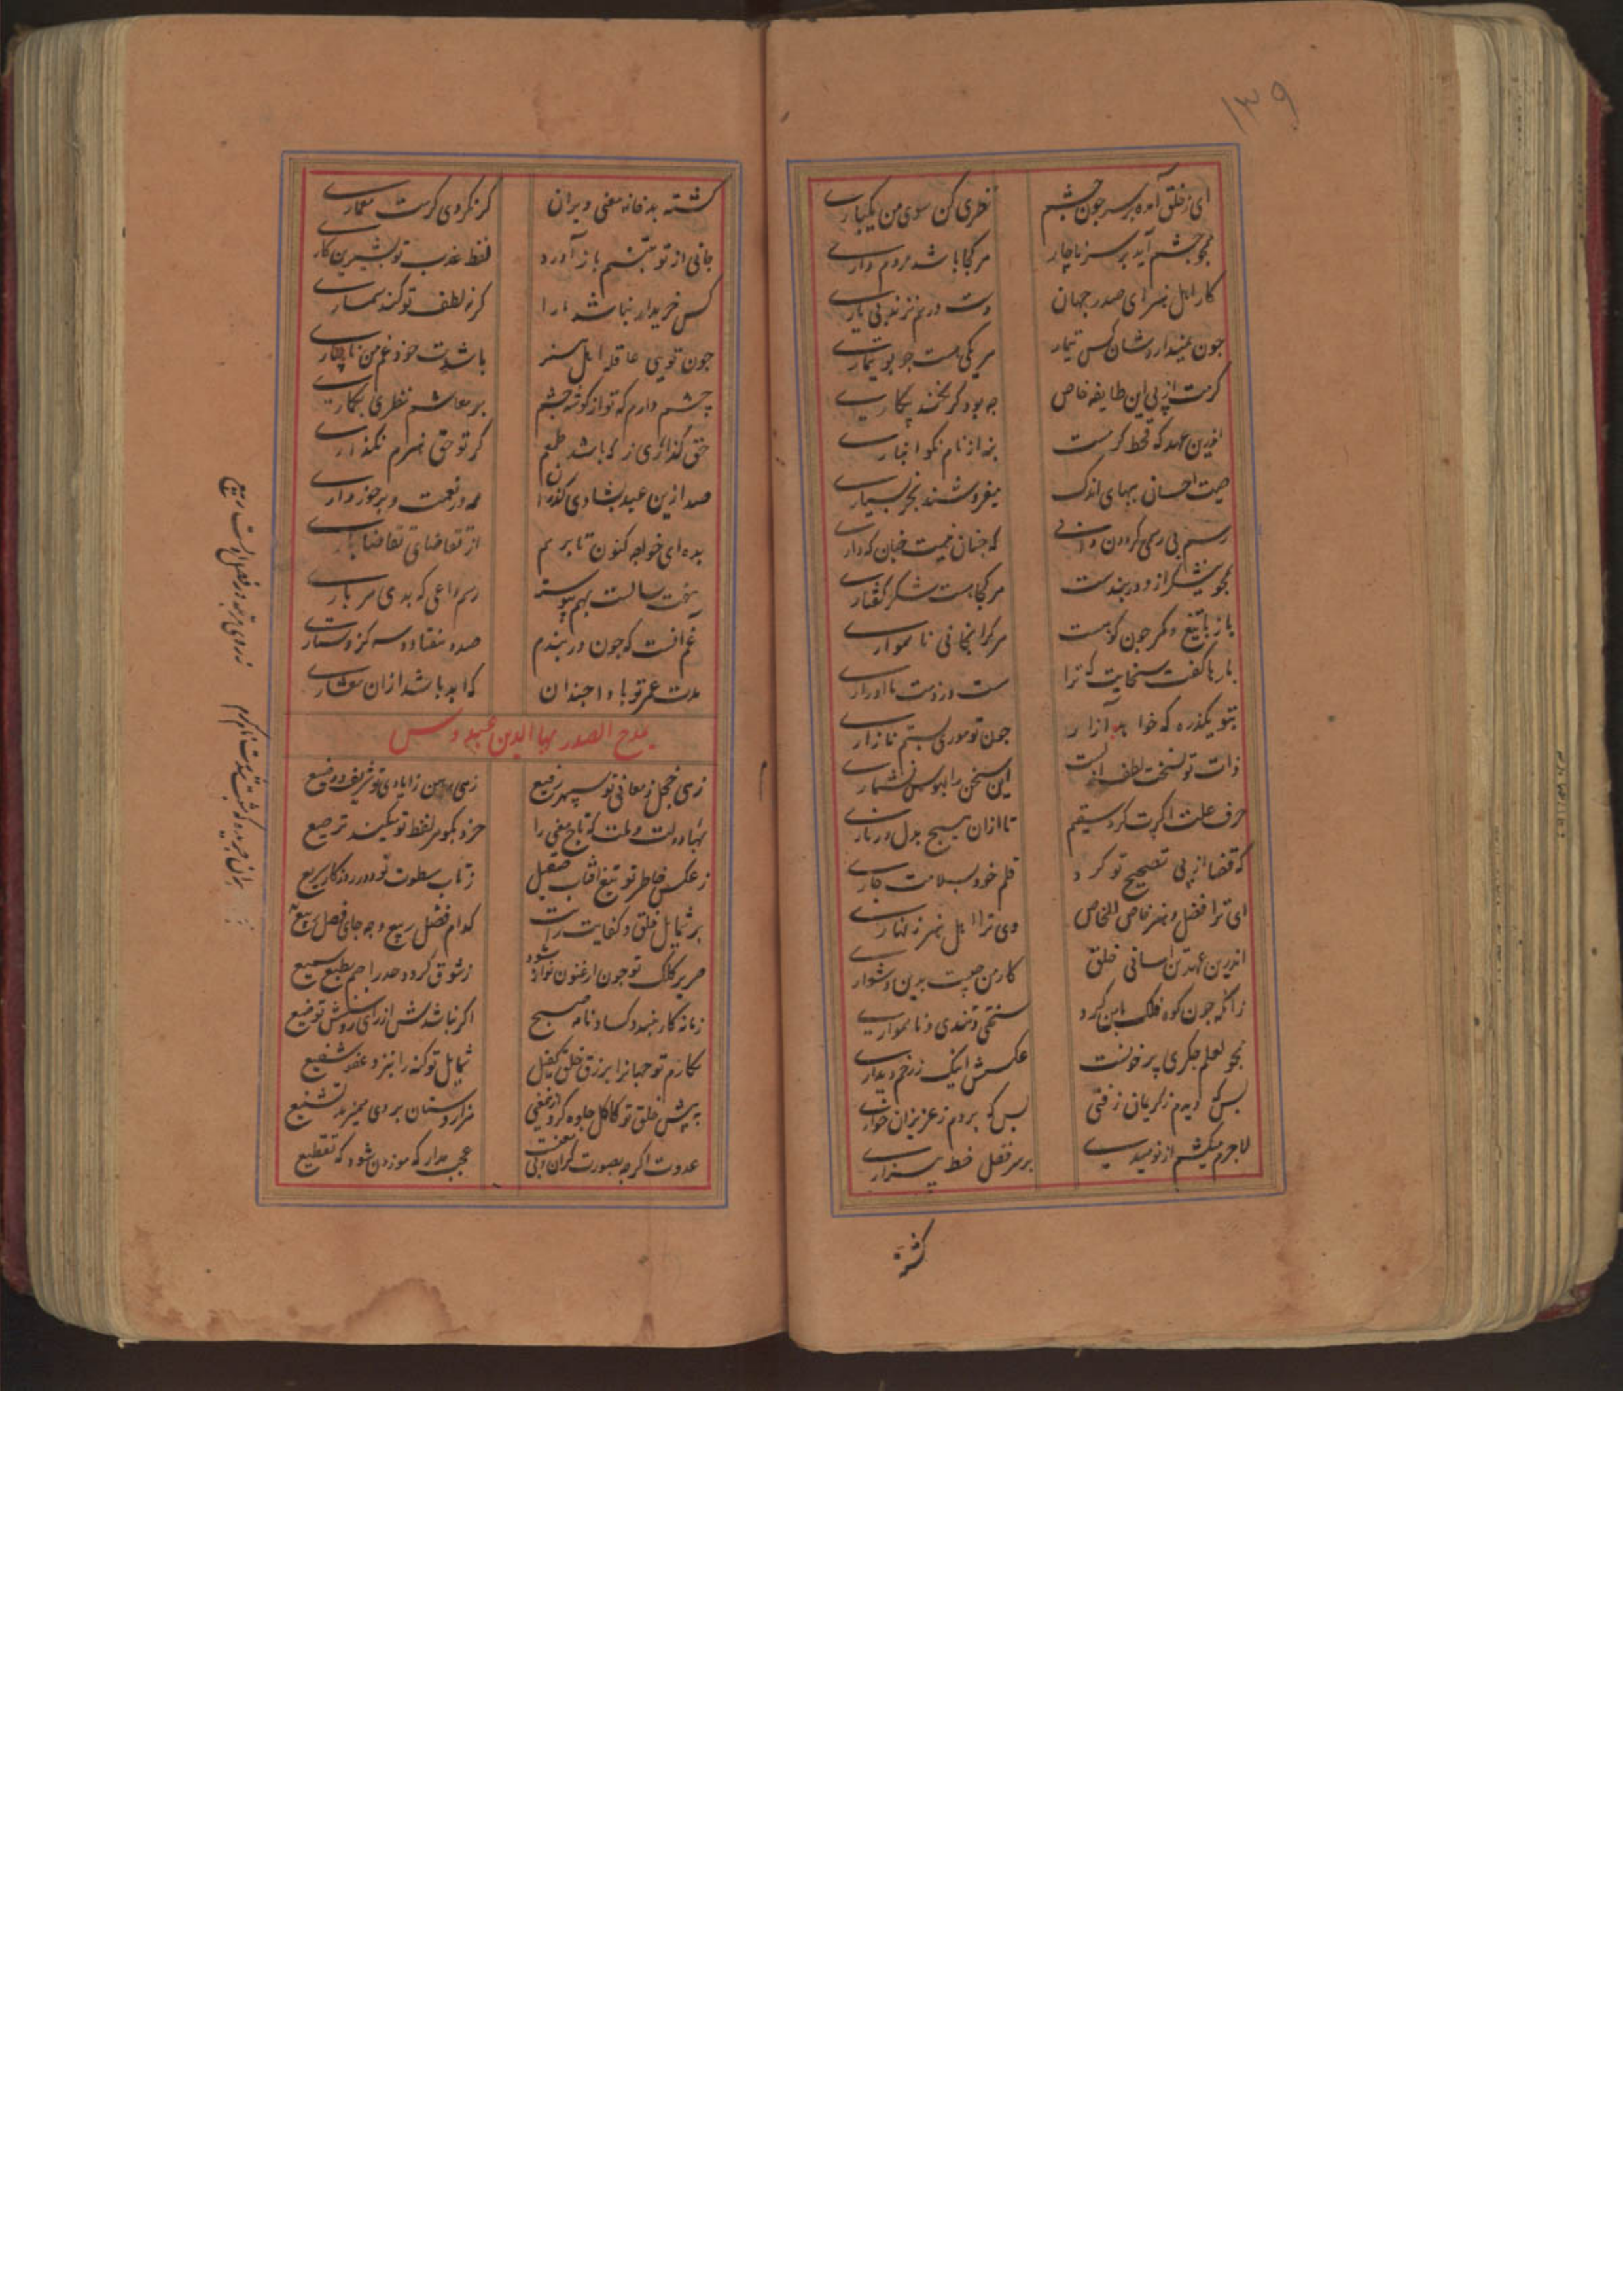 ۱۳۹
ای ز خلق آمده بر سر چون چشم نظری کن سوی من یکباری
همچو چشم آید بر سر ناچار هر کجا باشد مردم داری
کار اهل هنر ای صدر جهان دست درهم نزند بی یاری
چون نمیدارد شان کس تیمار هر یکی هست چو بوتیماری
کرمت از پی این طایفه خاص چه بود گر بکند پیکاری
اندرین عهد که قحط کرمست بنه از نام نکو انباری
صیت احسانی بهای اندک میفروشند بخر بسیاری
رسم بی رسمی گردون
همچو نیشکر از و دربندست هر کجا هست شکر گفتاری
باز با تیغ و کمر چون کوهست هر گرانجانی ناهمواری
بارها گفت سخایت که ترا هست در ذمت ما ادراری
بتو یکذره که خواهد آزار چون تو موری بستم نازاری
ذات تو نسخت لطف ازلست این سخن را بهوس نشماری
حرف علت اگرت کرد سقیم تا ازان هیچ بدل در ناری
که قضا از پی تصحیح تو کرد قلم خود بسلامت جاری
ای ترا فضل و هنر خاص الخاص وی ترا اهل هنر زنهاری
اندرین عهد تن اسانی خلق کار من چیست بدین دشواری
زانکه چون کوه فلک با من کرد سختی و تندی و ناهمواری
همچو لعلم جگری پر خونست عکسش اینک ز رخم دیداری
بس که دیدم ز کریمان زفتی بس که بردم ز عزیزان خواری
لاجرم میکشم از نومیدی بر سر فضل خط بیزاری
کشته
کشته بد خانه معنی ویران گر نکردی کرمت معماری
جانی از تو بتنم باز آورد لفظ عذب تو بشیرین کاری
کس خریدار نباشد ما را گر نه لطف تو کند سمساری
چون تویی عاقله اهل هنر باشدت خود غم من ناچاری
چشم دارم که تو از گوشه چشم بر معاشم نظری بگماری
حق گذاری ز که باشد طمعم گر تو حق هنرم نگذاری
صد ازین عید بشادی گذران همه در نعمت و برخورداری
بده ای خواجه کنون تا برهم از تقاضای تقاضا باری
پنجت سالست بهم پیوسته رسم داعی که بدی هر باری
غم آنست که چون دربندم صد و هفتاد و سه کز دستاری
مدت عمر تو بادا چندان که ابد باشد ازان معشاری
یمدح الصدر بهاالدین عبیدوس
زهی خجل ز معانی تو سپهر رفیع زهی رهین ایادی تو شریف و وضیع
بهاء دولت و ملت که تاج معنی را خرد بگوهر لفظ تو میکند ترصیع
ز عکس خاطر تو تیغ آفتاب صقیل ز تاب سطوت تو دور روزگار سریع
بر شمایل خلق و کفایت رایت کدام فضل ربیع و چه جای فصل ربیع
صریر کلک تو چون ارغنون نوازد شود ز شوق گردد جذر اصم بطبع سمیع
زمانه کار نبندد کساد نامه صبح اگر نباشدش از رای روشنش توقیع
مکارم تو جهانرا برزق خلق کفیل شمایل تو گنه را بنزد عفو شفیع
به پیش خلق تو گر گل جلوه کرد از غنچه هزاردستان بر وی همیزند تشنیع
عدوت اگرچه بصورت گران و بی معنیست عجب مدار که موزون شود گه تقطیع